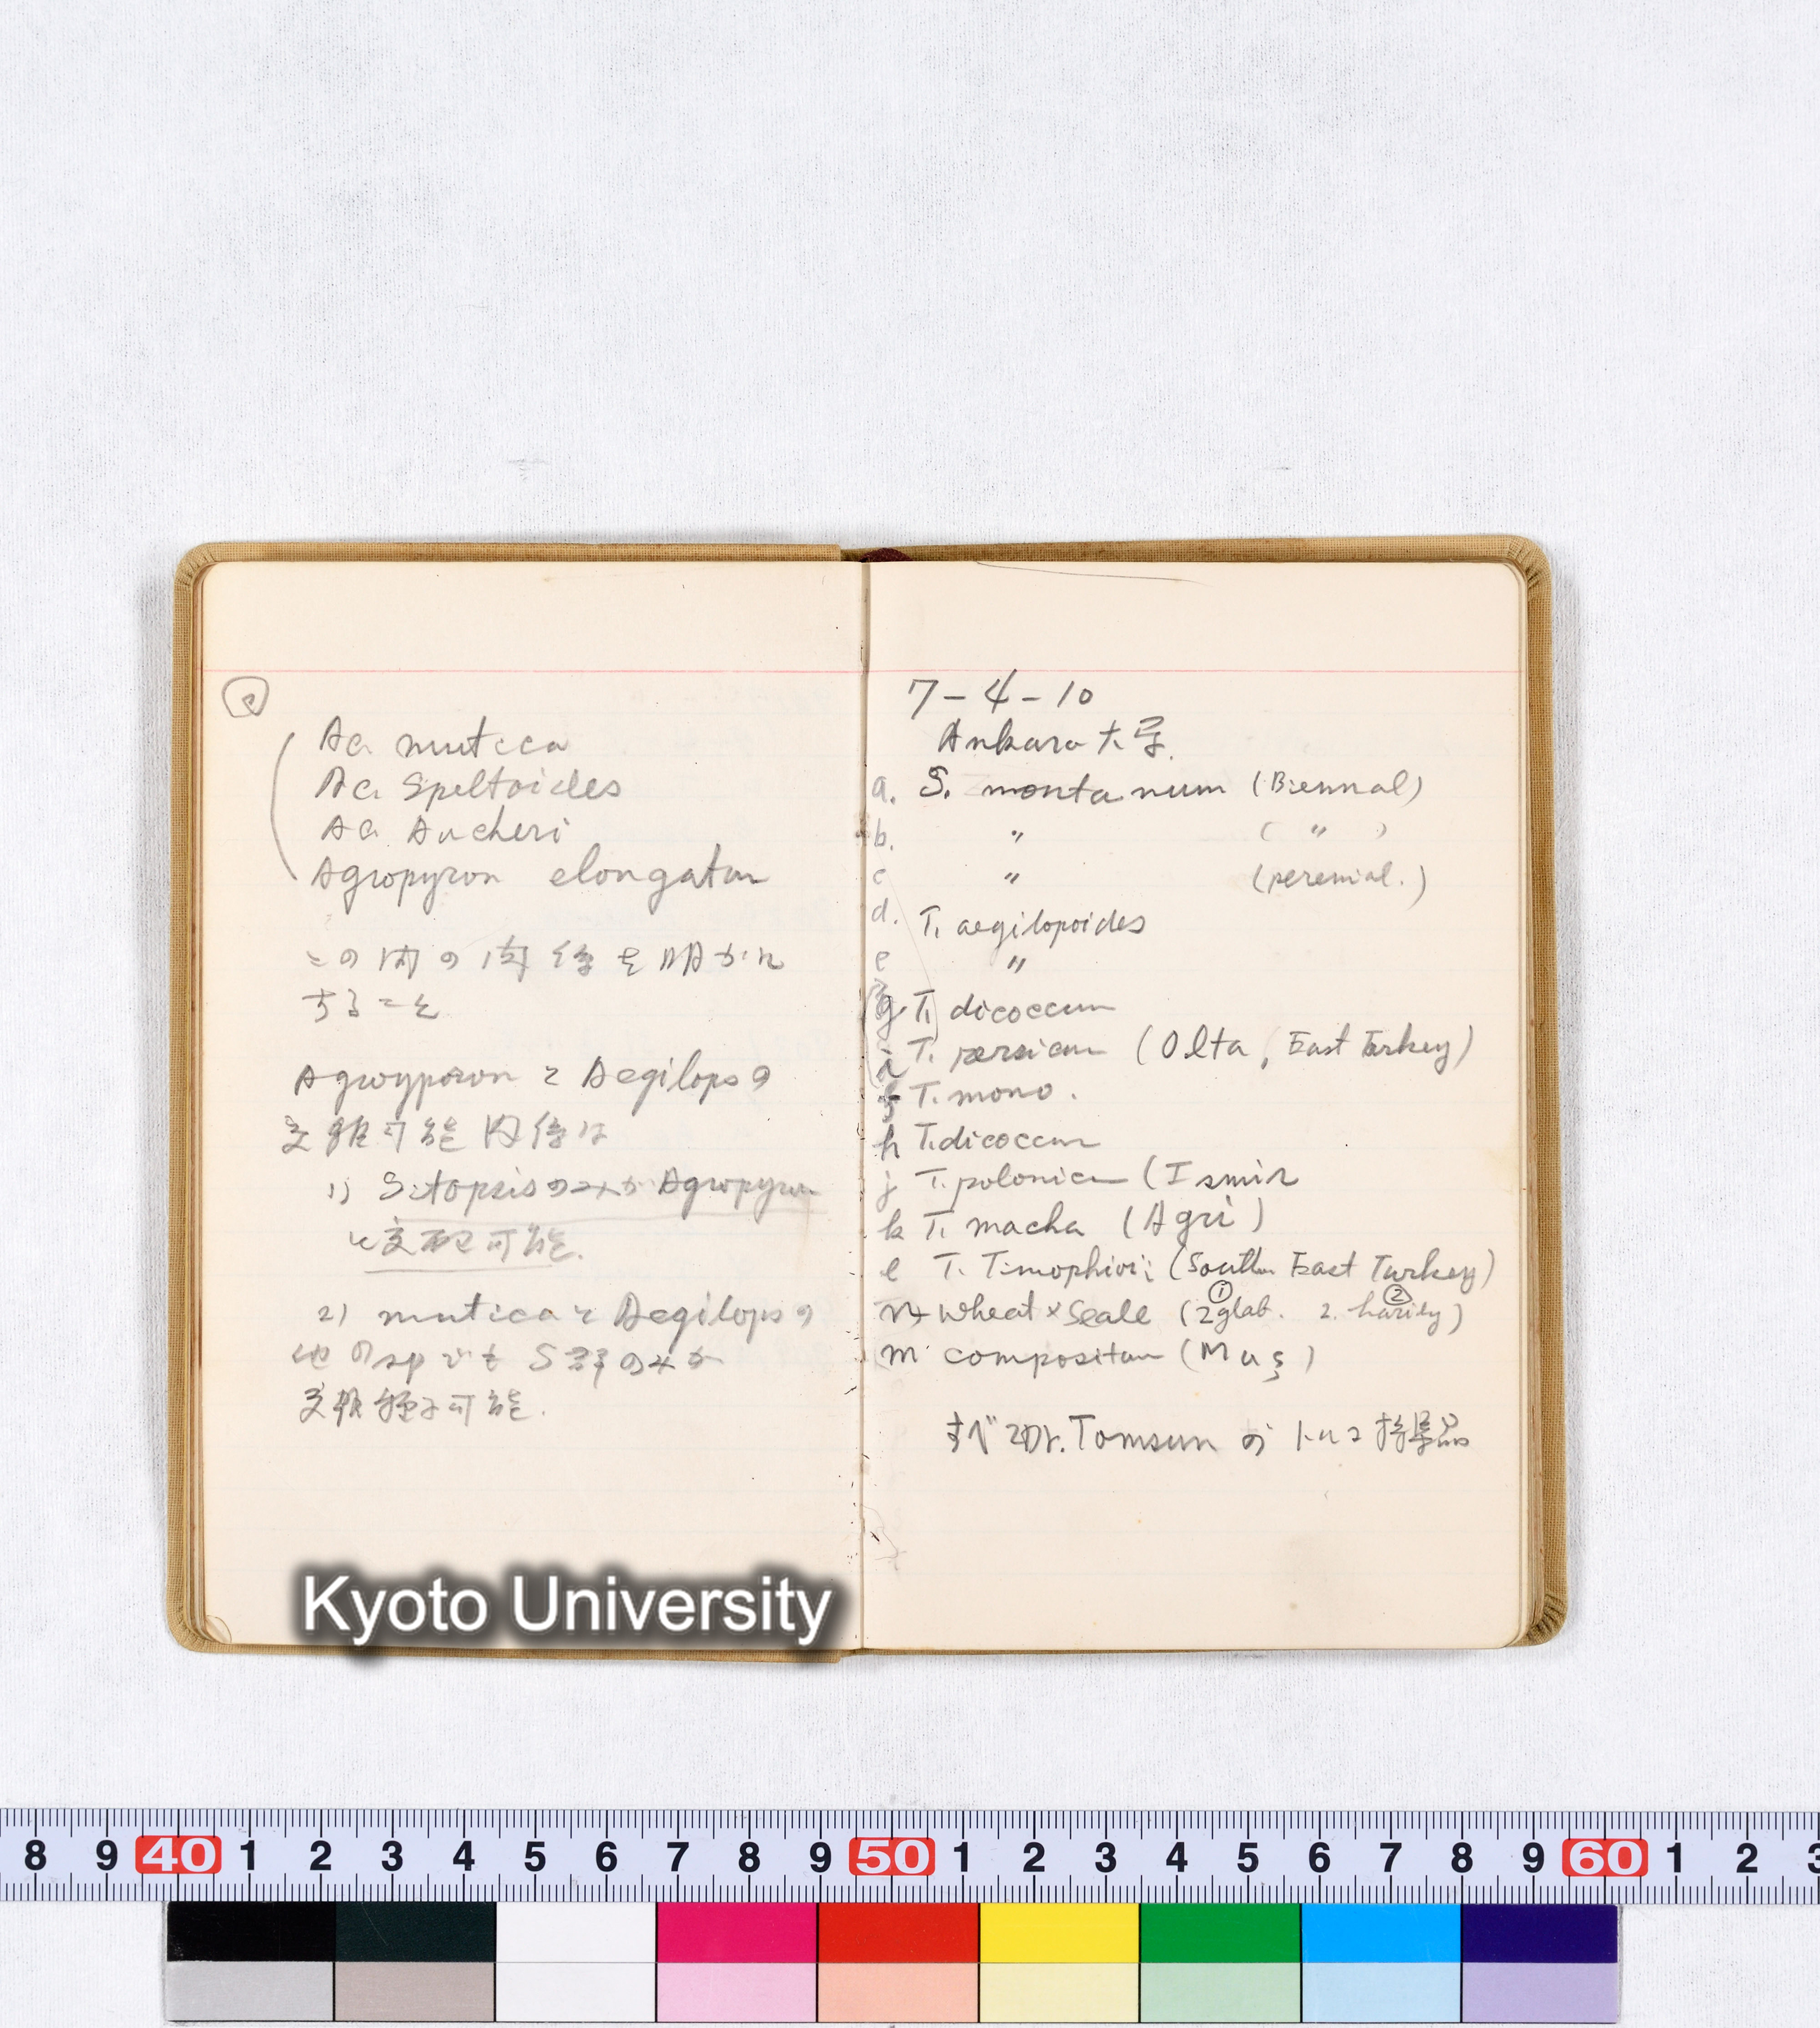 ②
Ae. mutica
Ae. Speltoides
Ae. Aucheri
Agropyron elongatum
この間の関係を明かに
すること
Agroyporon と Aegilopsの
交雑可能関係は
1) Sitopsisのみが Agropyron
に交配可能.
2) muticaと Aegilopsの
他のspでも S群のみが
交雑種子可能.
7-4-10
Ankara大学.
a. S. montanum (Biennal)
b. 〃 ( 〃 )
c 〃 (perennial.)
d. T. aegilopoides
e 〃
g. T. dicoccum
i T. persicum (Olta, East Turkey)
f T. mono.
h T. dicoccum
j T. polonicum (Ismir
k T. macha (Agri)
l T. Timophivii (South East Turkey)
n wheat × Seale (① 2 glab. ② 2. hairly)
m compositum (Muş)
すべてDr. Tomsun の
Kyoto University
8 9 40 1 2 3 4 5 6 7 8 9 50 1 2 3 4 5 6 7 8 9 60 1 2 3